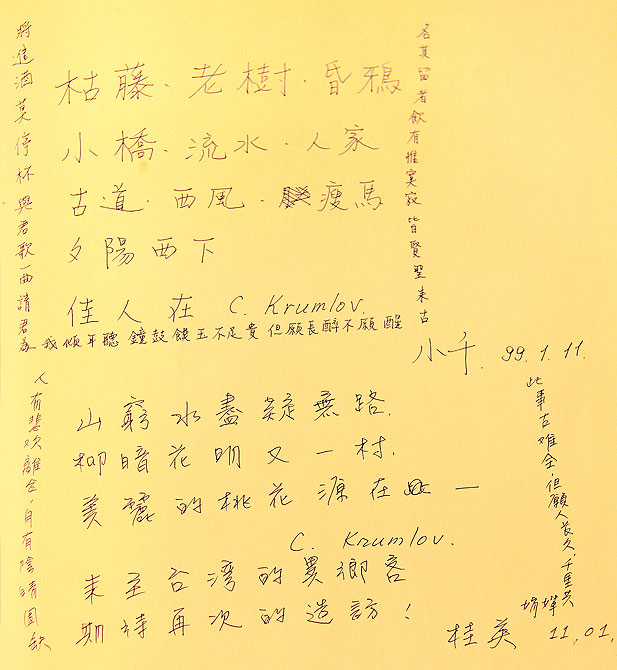 將進酒莫停杯與君歌一曲請君為
我傾耳聽 鐘鼓饌玉不足貴 但願長醉不願醒
古來聖賢皆寂寞惟有飲者留其名
枯藤·老樹·昏鴉
小橋·流水·人家
古道·西風·瘦馬
夕陽西下
佳人在 C. Krumlov.
小千. 99.1.11.
山窮水盡疑無路.
柳暗花明又一村.
美麗的桃花源在 —
C. Krumlov.
來至台湾的異鄉客
期待再次的造訪!
桂英 11,01,
人有悲欢離合,月有陰晴圓缺
此事古難全,但願人長久,千里共
嬋娟